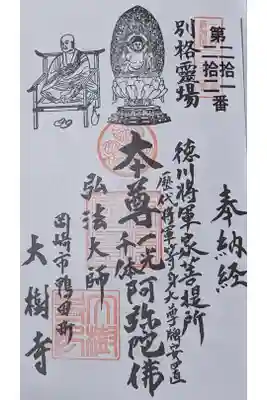 第二拾一番
二拾二
別格靈場
奉納経
徳川将軍家菩提所
歴代将軍等身大尊牌安置
本尊一光千体阿弥陀佛
弘法大師
岡崎市鴨田町
大樹寺